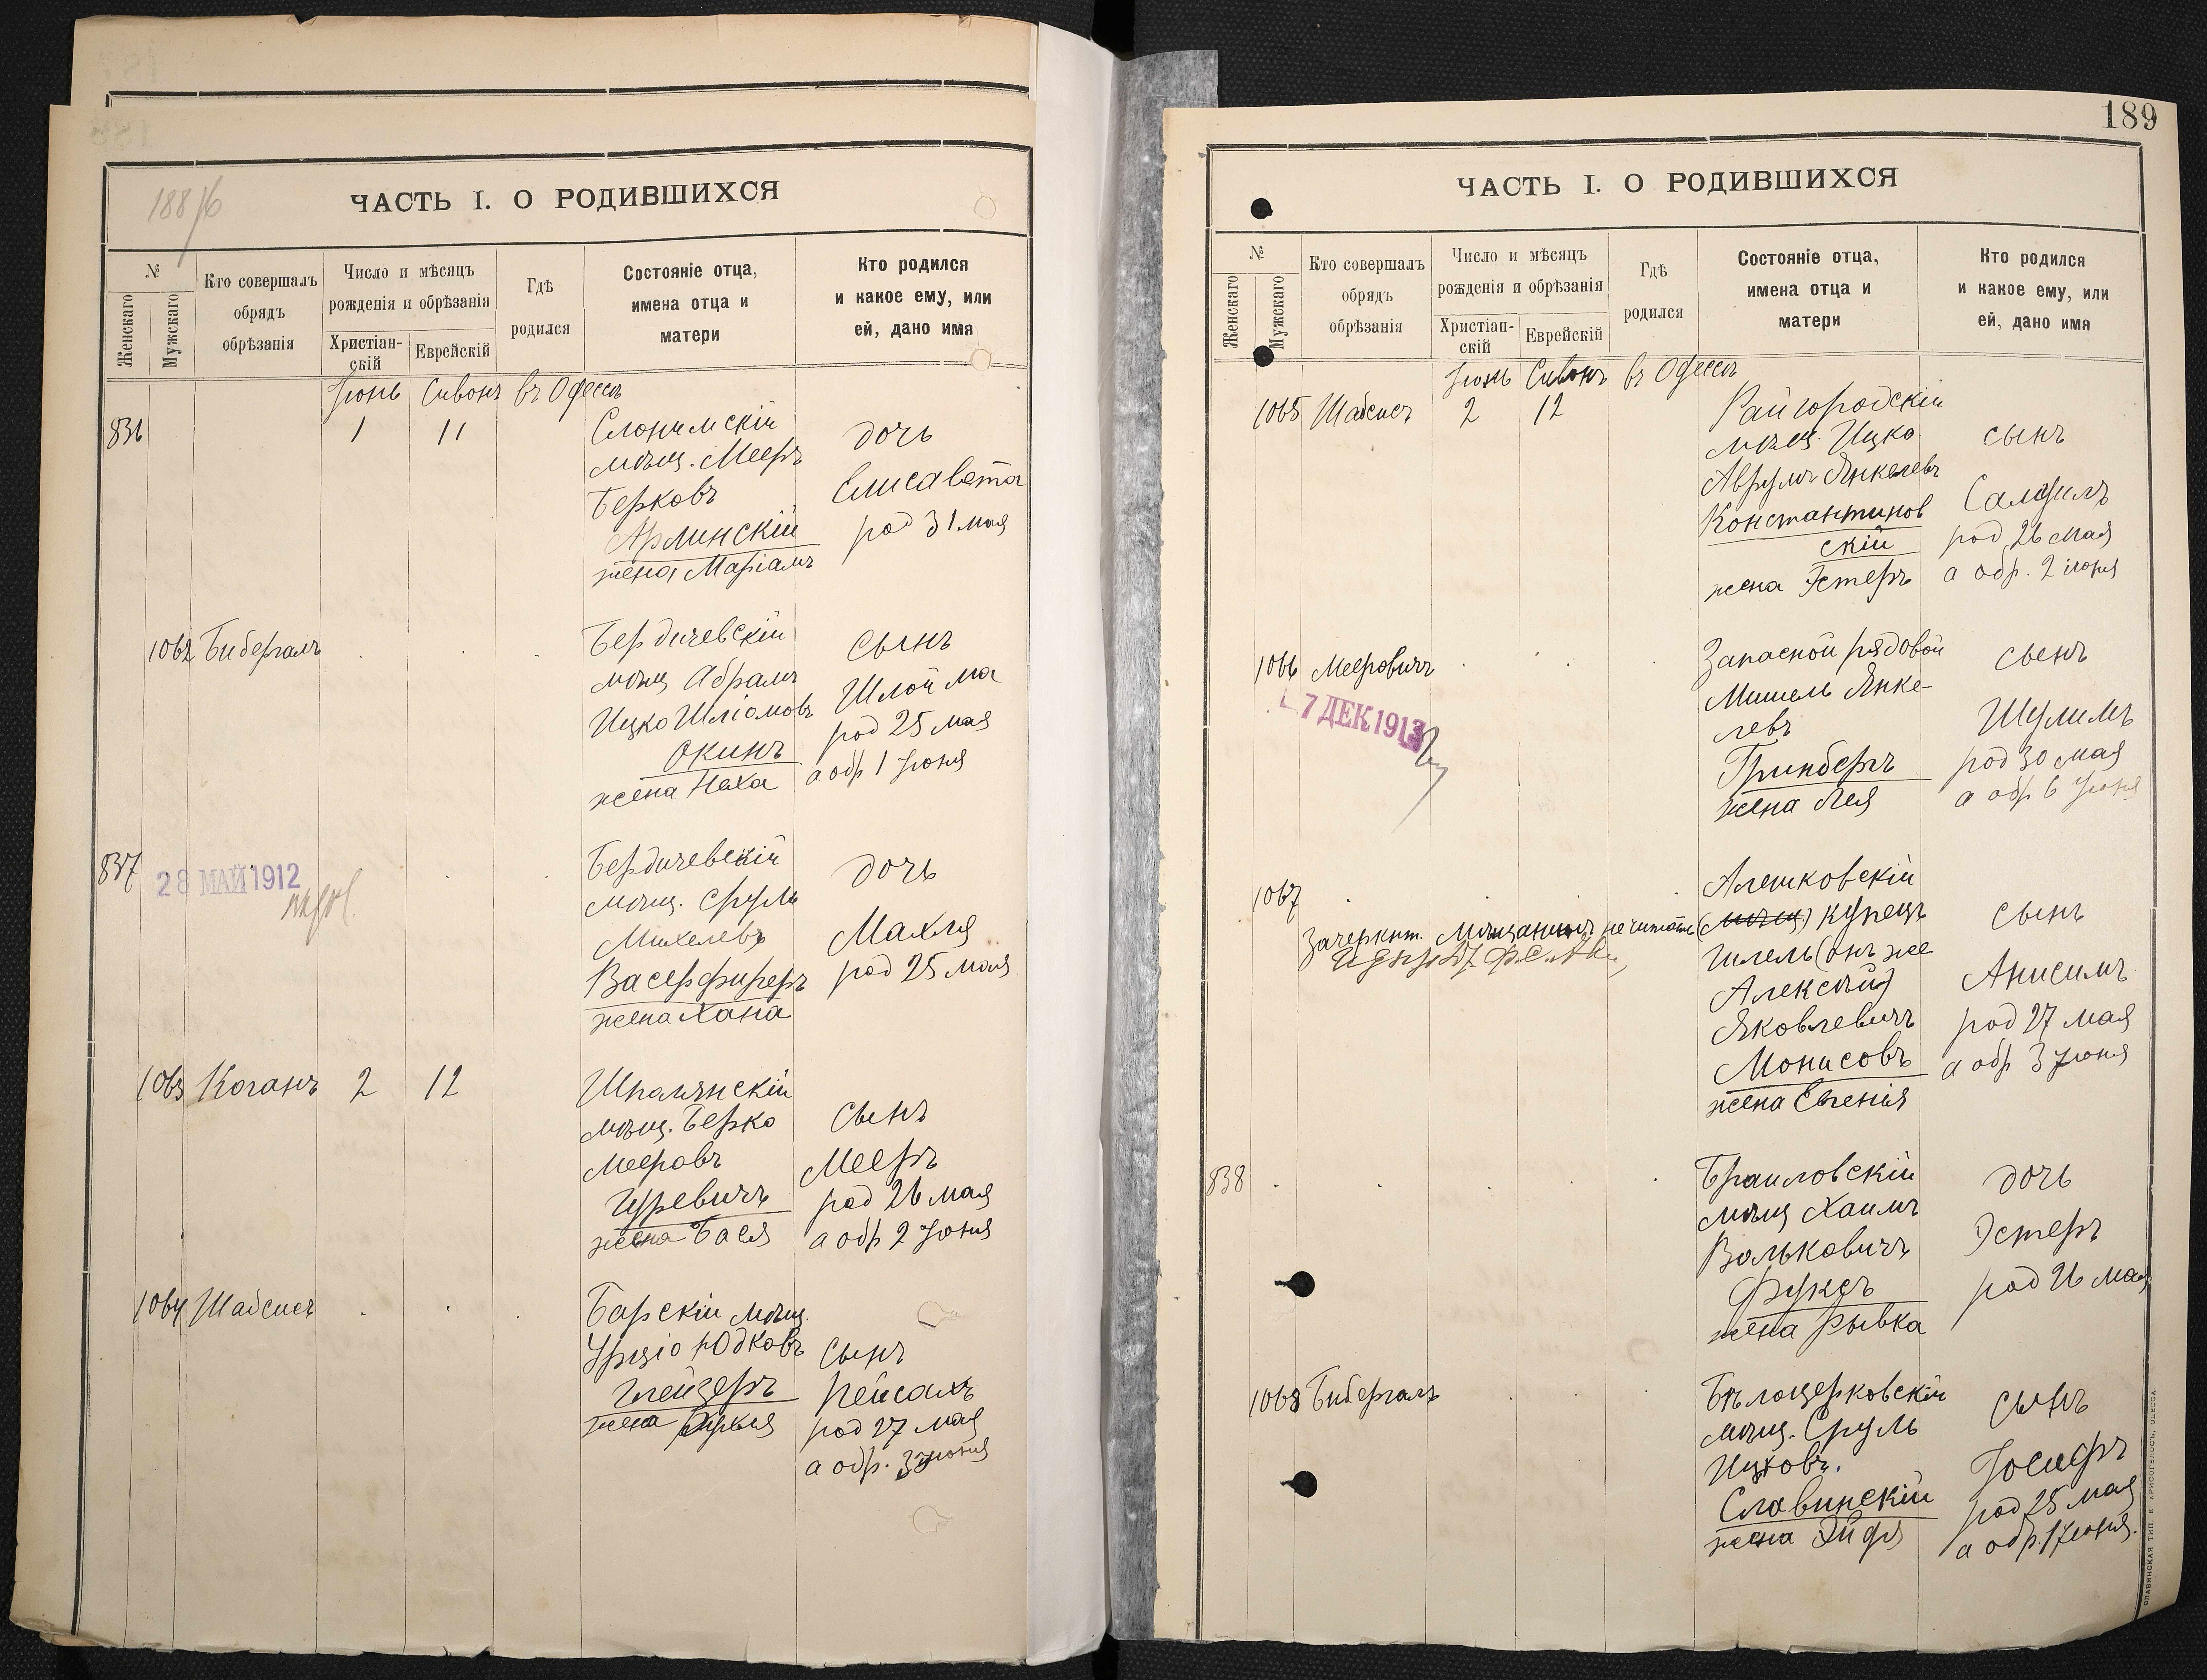 188
ЧАСТЬ I. О РОДИВШИХСЯ
№
Женскаго
Мужскаго
Кто совершалъ
обрядъ
обрѣзанія
Число и мѣсяцъ
рожденія и обрѣзанія
Христіан-
скій
Еврейскій
Гдѣ
родился
Состояніе отца,
имена отца и
матери
Кто родился
и какое ему, или
ей, дано имя
Іюнь Сивонъ въ Одессѣ
836 1 11
Слонимскій
мѣщ. Мееръ
Берковъ
Арлинскій
жена Маріамъ
дочь
Елисавета
род 31 мая
1062 Бибергалъ
Бердичевскій
мѣщ Абрамъ
Ицко Шліомовъ
Окинъ
жена Неха
сынъ
Шлойма
род 25 мая
а обр 1 Іюня
837
28 МАЙ 1912
Бердичевскій
мѣщ. Сруль
Михелевъ
Васерфиреръ
жена Хана
дочь
Махля
род 25 мая
1063 Коганъ 2 12
Шполянскій
мѣщ. Берко
Мееровъ
Гуревичъ
жена Бася
сынъ
Мееръ
род 26 мая
а обр 2 Іюня
1064 Шабсисъ
Барскій мѣщ.
Юдковъ
Глейзеръ
жена
сынъ
Пейсахъ
род 27 мая
а обр. 3 Іюня
189
ЧАСТЬ I. О РОДИВШИХСЯ
№
Женскаго
Мужскаго
Кто совершалъ
обрядъ
обрѣзанія
Число и мѣсяцъ
рожденія и обрѣзанія
Христіан-
скій
Еврейскій
Гдѣ
родился
Состояніе отца,
имена отца и
матери
Кто родился
и какое ему, или
ей, дано имя
Іюнь Сивонъ въ Одессѣ
1065 Шабсисъ 2 12
Райгородскій
мѣщ. Ицко
Аврумъ Янкелевъ
Константинов
скій
жена Эстеръ
сынъ
род 26 мая
а обр. 2 іюня
1066 Мееровичъ
7 ДЕК 1913
Запасной рядовой
Мишель Янке-
левъ
Гринбергъ
жена Лея
сынъ
Шулимъ
род 30 мая
а обр 6 Іюня
1067
Зачеркнут. мѣщанинъ не читать
Алешковскій
(мѣщ.) купецъ
Гилель (онъ же
Алексѣй)
Яковлевичъ
Монисовъ
жена Евгенія
сынъ
Анисимъ
род 27 мая
а обр 3 Іюня
838
Браиловскій
мѣщ Хаимъ
Вольковичъ
Фуксъ
жена Рывка
дочь
Эстеръ
род 26 мая
1068 Бибергалъ
Бѣлоцерковскій
мѣщ. Сруль
Ицковъ.
Славинскій
жена
сынъ
Іосифъ
род 25 мая
а обр. 1 Іюня.
СЛАВЯНСКАЯ ТИП. Е. ХРИСОГЕЛОСЪ, ОДЕССА